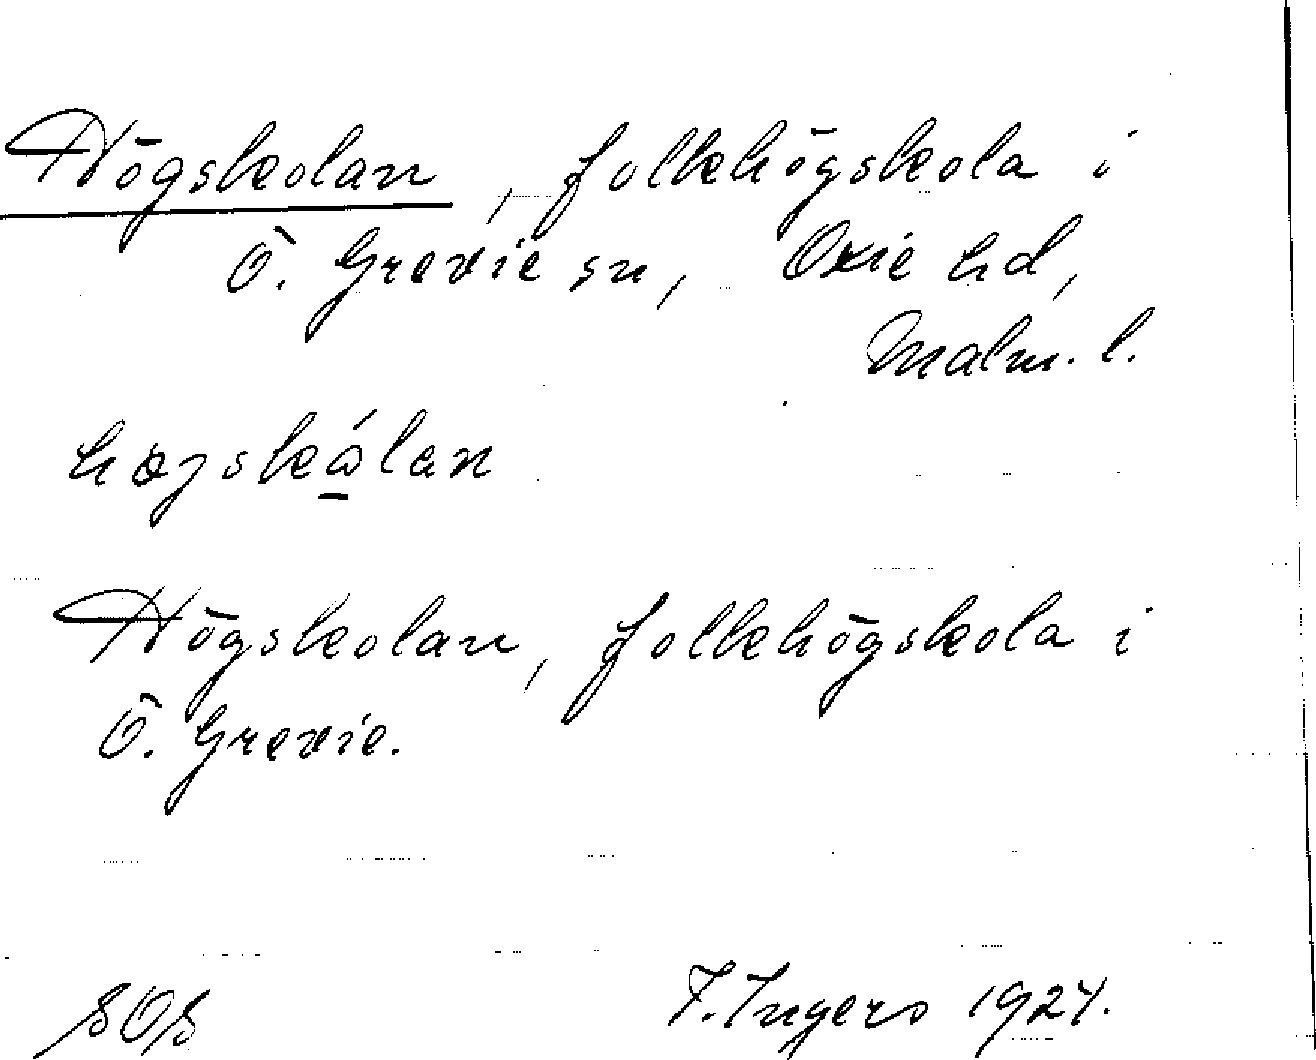 Högskolan, folkhögskola i
Ö. Grevie sn, Oxie hd,
Malm. l.
Högskolan, folkhögskola i
Ö. Grevie.
F. Ingers 1924.